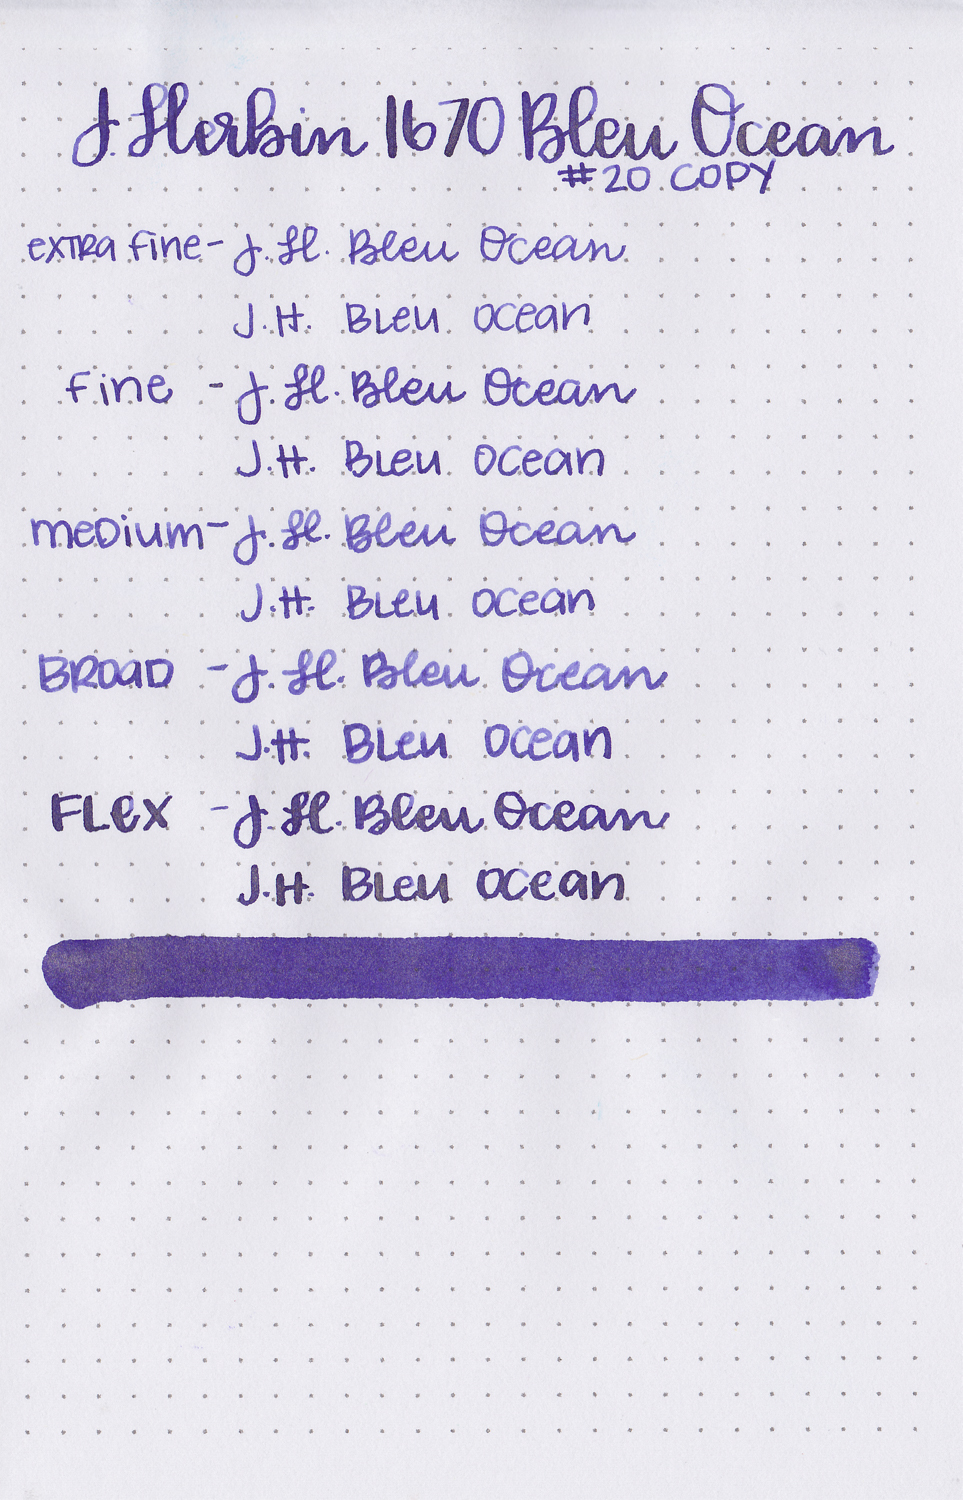 J Herbin 1670 Bleu Ocean
#20 COPY
extra fine - J. H. Bleu Ocean
J.H. Bleu Ocean
Fine - J. H. Bleu Ocean
J.H. Bleu Ocean
medium - J. H. Bleu Ocean
J.H. Bleu Ocean
Broad - J. H. Bleu Ocean
J.H. Bleu Ocean
Flex - J. H. Bleu Ocean
J.H. Bleu Ocean